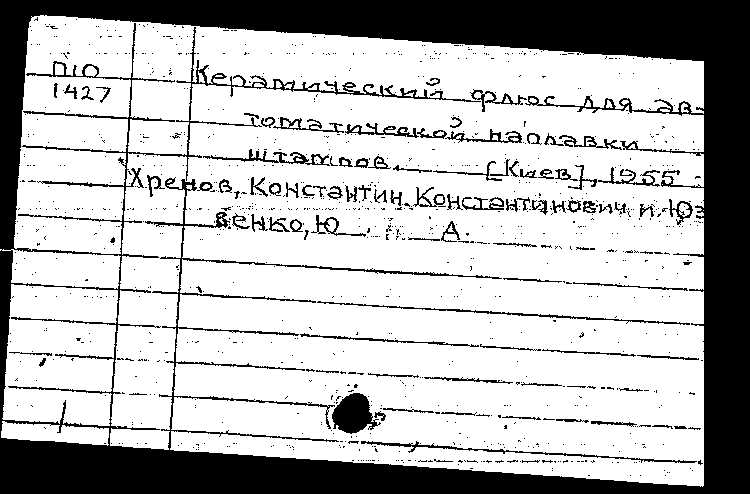 П10
1427
Керамический флюс для ав-
томатической наплавки
штампов. [Киев], 1955
Хренов, Константин Константинович и Юз
венко, Ю. А.